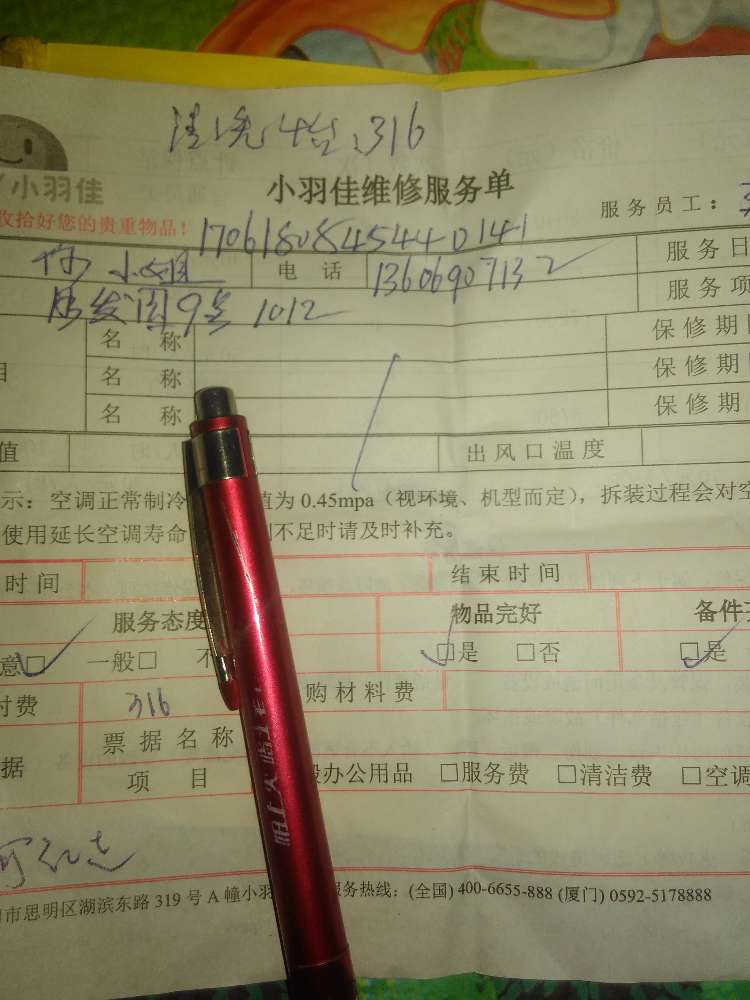 清洗4台、316
小羽佳
小羽佳维修服务单
收拾好您的贵重物品！
服务员工：
1706180845440141
小姐
电 话
13606907132
服务日
9号 1012
服务项
名 称
保修期
目
名 称
保修期
名 称
保修期
值
出风口温度
示：空调正常制冷 值为 0.45mpa（视环境、机型而定），拆装过程会对空
使用延长空调寿命 不足时请及时补充。
时间
结束时间
服务态度
物品完好
备件
意□ 一般□ 不
□是 □否
□是
付费
316
购材料费
据
票据名称
项 目
办公用品 □服务费 □清洁费 □空调
市思明区湖滨东路 319 号 A 幢小羽 服务热线：(全国) 400-6655-888 (厦门) 0592-5178888